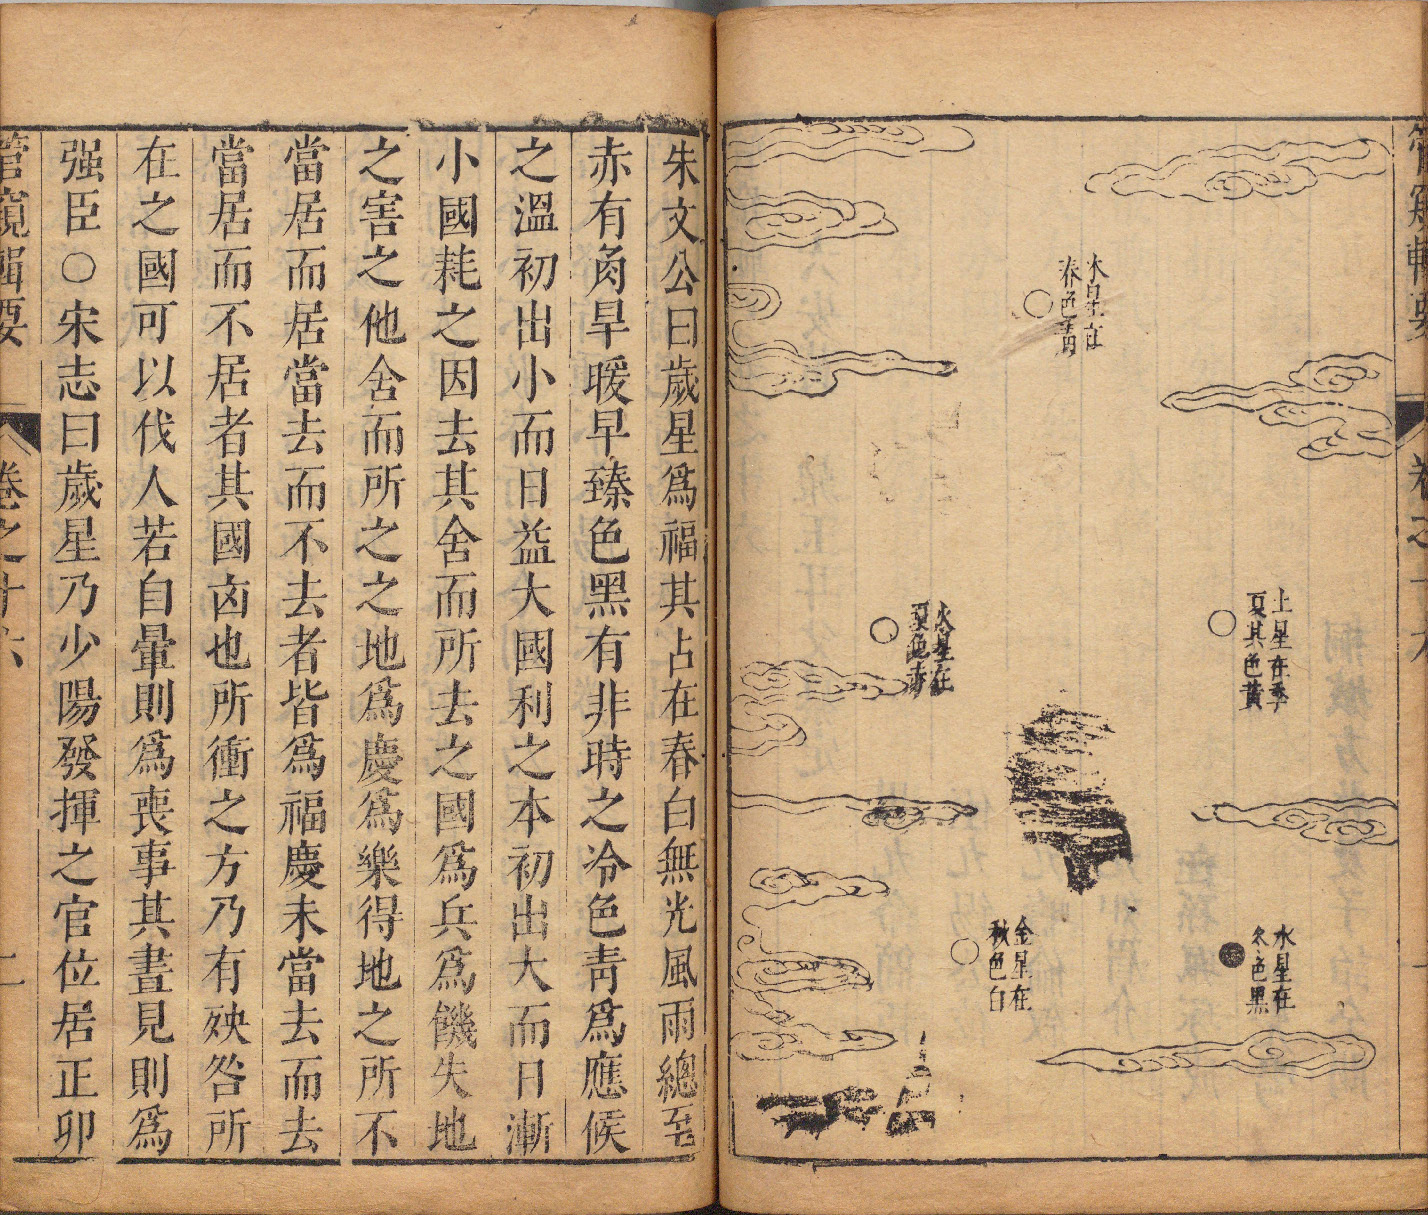 管窺輯要
卷之十六
木星在
春色青
土星在季
夏其色黃
水星在
冬色黑
火星在
夏色赤
金星在
秋色白
朱文公曰歲星爲福其占在春白無光風雨總至
赤有角旱暖早臻色黑有非時之冷色靑爲應候
之溫初出小而日益大國利之本初出大而日漸
小國耗之因去其舍而所去之國爲兵爲饑失地
之害之他舍而所之之地爲慶爲樂得地之所不
當居而居當去而不去者皆爲福慶未當去而去
當居而不居者其國㐫也所衝之方乃有殃咎所
在之國可以伐人若自暈則爲喪事其晝見則爲
强臣○宋志曰歲星乃少陽發揮之官位居正卯
管窺輯要
卷之十六
二